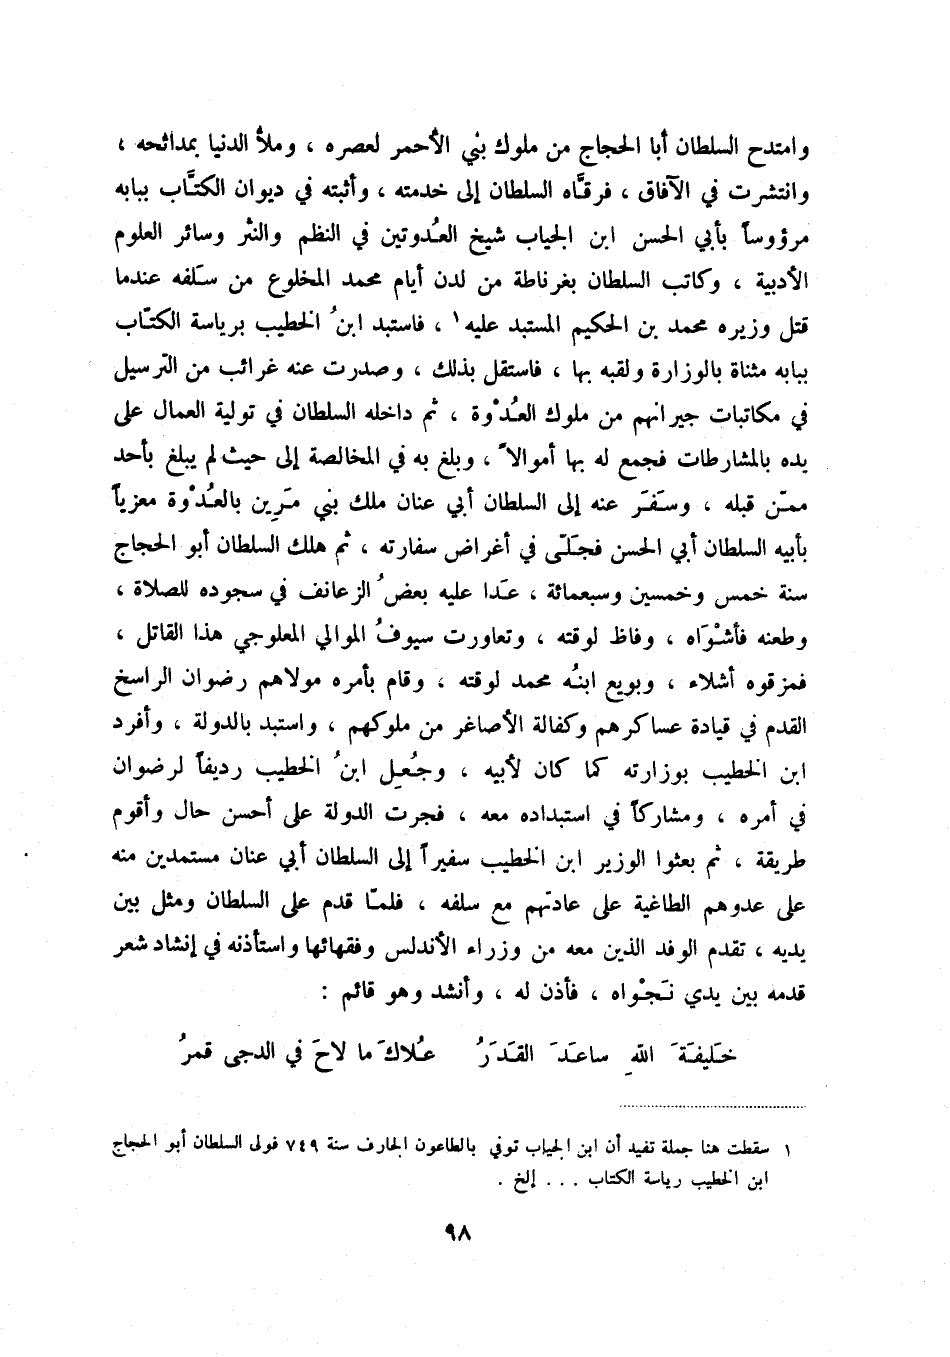 وامتدح السلطان أبا الحجاج من ملوك بني الأحمر لعصره ، وملأ الدنيا بمدائحه ،
وانتشرت في الآفاق ، فرقَّاه السلطان إلى خدمته ، وأثبته في ديوان الكتَّاب ببابه
مرؤوساً بأبي الحسن ابن الجياب شيخ العُدوتين في النظم والنثر وسائر العلوم
الأدبية ، وكاتب السلطان بغرناطة من لدن أيام محمد المخلوع من سَلفه عندما
قتل وزيره محمد بن الحكيم المستبد عليه١ ، فاستبد ابنُ الخطيب برياسة الكتّاب
ببابه مثناة بالوزارة ولقبه بها ، فاستقل بذلك ، وصدرت عنه غرائب من الترسيل
في مكاتبات جيرانهم من ملوك العُدْوة ، ثم داخله السلطان في تولية العمال على
يده بالمشارطات فجمع له بها أموالاً ، وبلغ به في المخالصة إلى حيث لم يبلغ بأحد
ممّن قبله ، وسَفَرَ عنه إلى السلطان أبي عنان ملك بني مَرِين بالعُدْوة معزياً
بأبيه السلطان أبي الحسن فجَلّى في أغراض سفارته ، ثم هلك السلطان أبو الحجاج
سنة خمس وخمسين وسبعمائة ، عَدا عليه بعضُ الزعانف في سجوده للصلاة ،
وطعنه فأشْوَاه ، وفاظ لوقته ، وتعاورت سيوفُ الموالي المعلوجي هذا القاتل ،
فمزقوه أشلاء ، وبويع ابنُه محمد لوقته ، وقام بأمره مولاهم رضوان الراسخ
القدم في قيادة عساكرهم وكفالة الأصاغر من ملوكهم ، واستبد بالدولة ، وأفرد
ابن الخطيب بوزارته كما كان لأبيه ، وجُعِل ابنُ الخطيب رديفاً لرضوان
في أمره ، ومشاركاً في استبداده معه ، فجرت الدولة على أحسن حال وأقوم
طريقة ، ثم بعثوا الوزير ابن الخطيب سفيراً إلى السلطان أبي عنان مستمدين منه
على عدوهم الطاغية على عادتهم مع سلفه ، فلمّا قدم على السلطان ومثل بين
يديه ، تقدم الوفد الذين معه من وزراء الأندلس وفقهائها واستأذنه في إنشاد شعر
قدمه بين يدي نَجْواه ، فأذن له ، وأنشد وهو قائم :
خَليفَةَ اللهِ ساعَدَ القَدَرُ عُلاكَ ما لاحَ في الدجى قمرُ
١ سقطت هنا جملة تفيد أن ابن الجياب توفي بالطاعون الجارف سنة ٧٤٩ فولى السلطان أبو الحجاج
ابن الخطيب رياسة الكتاب . . . إلخ .
٩٨